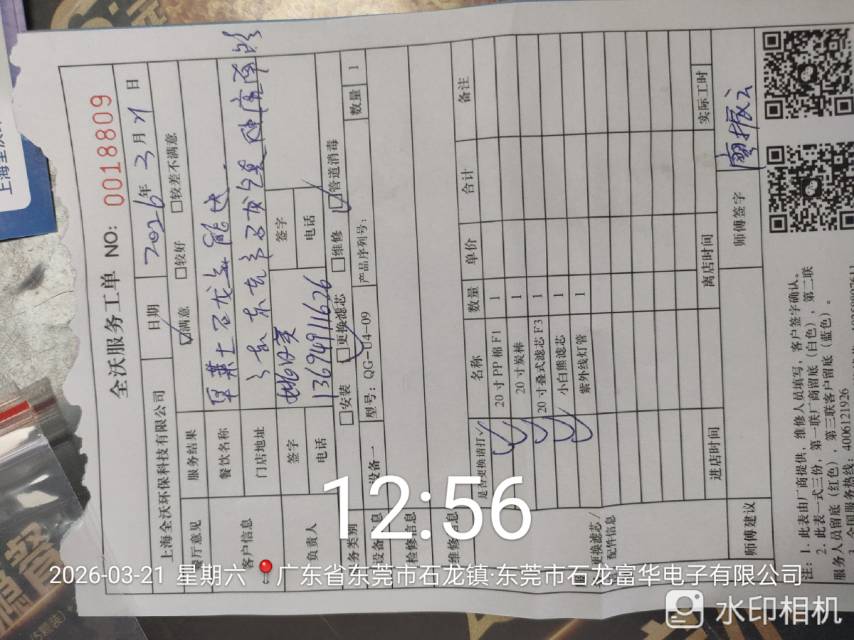 全沃服务工单 NO: 0018809
上海全沃环保科技有限公司 日期 2026年 3月 21日
餐厅意见 服务结果 ☑满意 □较好 □较差不满意
客户信息 餐饮名称
门店地址
负责人 签字 签字
电话 13696911626 电话
服务类别 □安装 ☑更换滤芯 □维修 ☑管道消毒
设备信息 设备一 型号: QG-04-09 产品序列号: 数量 1
检修信息
维修信息
更换滤芯/配件信息 是否更换请打✓ 名称 数量 单价 合计 备注
✓ 20 寸 PP 棉 F1 1
✓ 20 寸炭棒 1
✓ 20 寸叠式滤芯 F3 1
✓ 小白熊滤芯 1
✓ 紫外线灯管 1
进店时间 离店时间 实际工时
师傅建议 师傅签字
注: 1、此表由厂商提供, 维修人员填写, 客户签字确认。
2、此表一式三份, 第一联厂商留底 (白色), 第二联
服务人员留底 (红色), 第三联客户留底 (蓝色)。
全国服务热线: 4006121926
上海全沃
12:56
2026-03-21 星期六 广东省东莞市石龙镇·东莞市石龙富华电子有限公司
水印相机